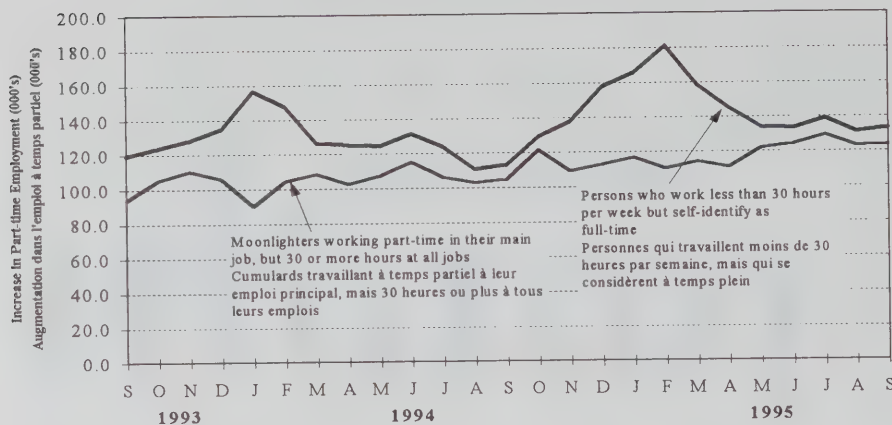 Increase In Part-time Employment (000's)
Augmentation dans l'emploi à temps partiel (000's)
200.0
180.0
160.0
140.0
120.0
100.0
80.0
60.0
40.0
20.0
0.0
Moonlighters working part-time in their main
job, but 30 or more hours at all jobs
Cumulards travaillant à temps partiel à leur
emploi principal, mais 30 heures ou plus à tous
leurs emplois
Persons who work less than 30 hours
per week but self-identify as
full-time
Personnes qui travaillent moins de 30
heures par semaine, mais qui se
considèrent à temps plein
S O N D J F M A M J J A S O N D J F M A M J J A S
1993 1994 1995